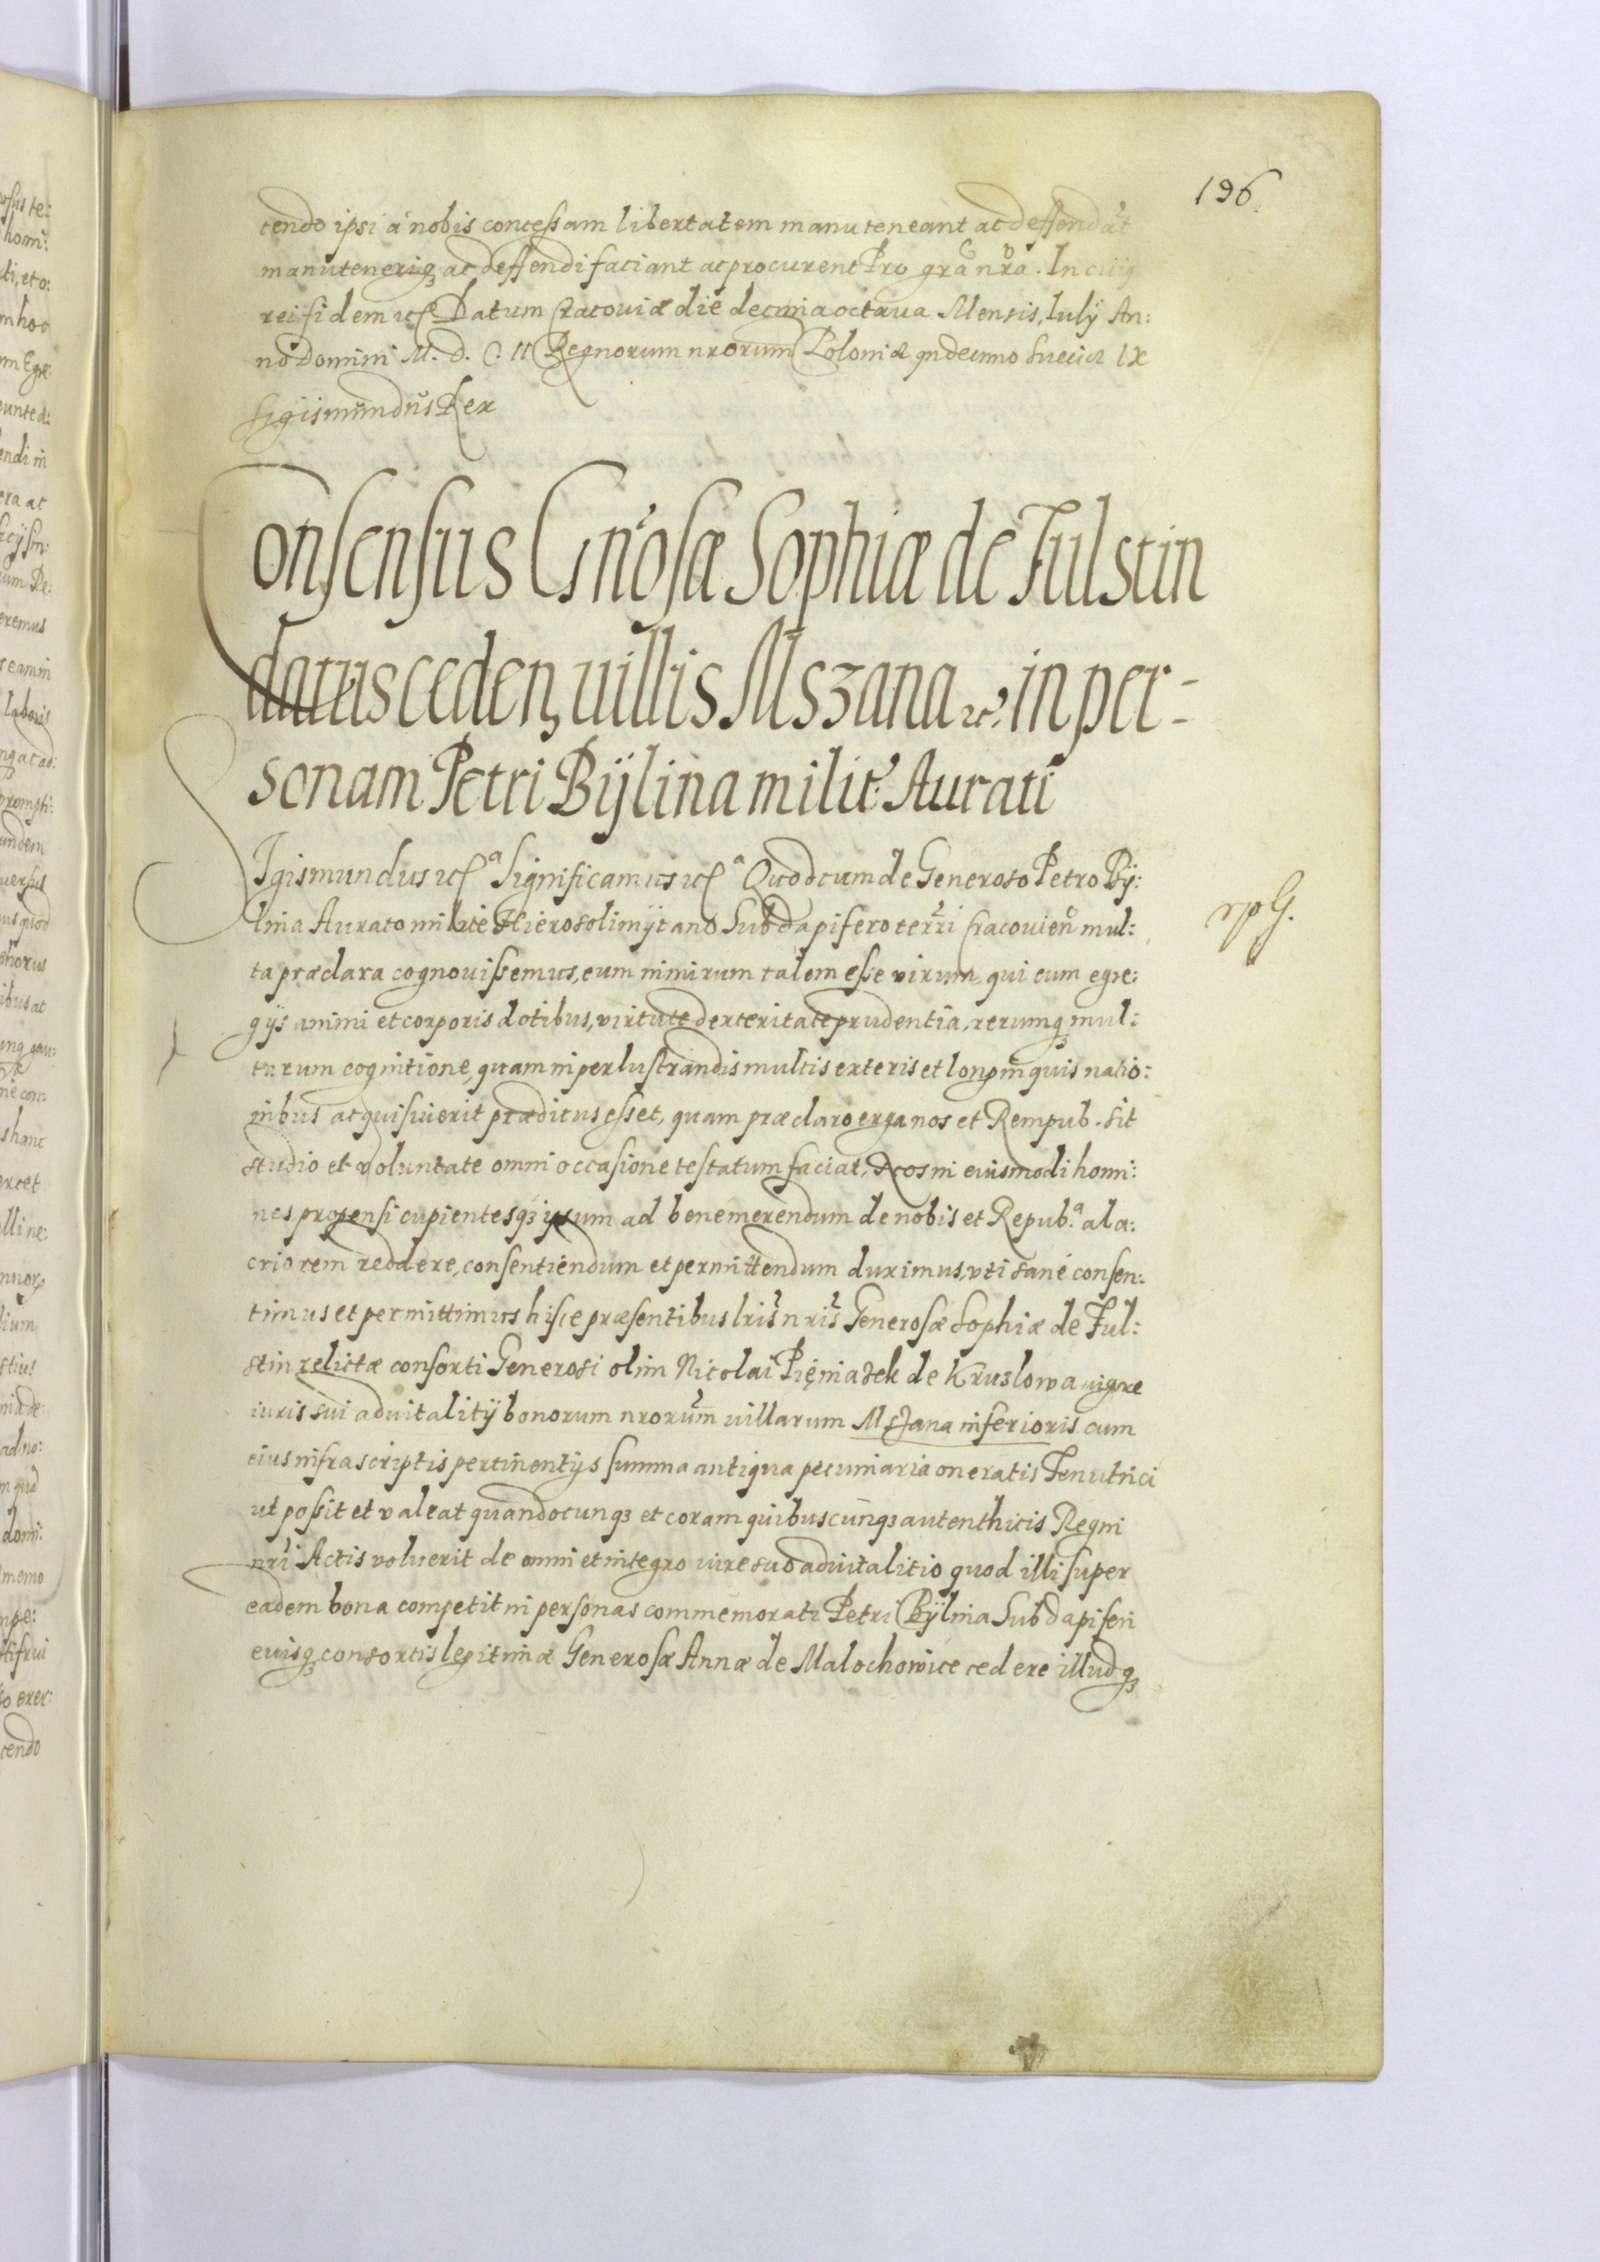 196.
tendo ipsi à nobis concessam libertatem manuteneant ac deffendāt
manuteneriq; ac deffendi faciant ac procurent Pro grā nrā. In cuiq
rei fidem etc Datum Cracouiæ die decima octaua Mensis, Iulij An:
no Domini M. D. C. II Regnorum nrorum Poloniæ qndecimo Sueciæ IX
Sigismundus Rex
Consensus Gn'osæ Sophiæ de Fulstin
datus ceden; uillis Mszana etc. in per-
sonam Petri Bÿlina milit: Aurati
Sigismundus etc.ª Significamus etc.ª Quod cum de Generoso Petro Bÿ:
lina Aurato milite Hierosolimÿtano Subdapifero terri Cracouien mul:
ta præclara cognouissemus, eum nimirum talem esse virum, qui cum egre:
gijs animi et corporis dotibus, virtute dexteritate prudentia, rerumq; mul:
tarum cognitione, quam in perlustrandis multis exteris et longinquis natio:
nibus acquisiuerit præditus esset, quam præclaro erga nos et Rempub. sit
studio et voluntate omni occasione testatum faciat, Nos in eiusmodi homi:
nes propensi cupientesq; ipsum ad benemerendum de nobis et Repub.ª ala:
criorem reddere, consentiendum et permittendum duximus, vti sane consen:
timus et permittimus hisce præsentibus lris nris Generosæ Sophiæ de Ful:
stin relictæ consorti Generosi olim Nicolai Pięniażek de Kruzlowa uigore
iuris sui aduitalitÿ bonorum nrorum uillarum Mszana inferioris cum
eius infrascriptis pertinentijs summa antiqua pecuniaria oneratis Tenutrici
ut possit et valeat quandocunq; et coram quibuscunq; autenthicis Regni
nri Actis voluerit de omni et integro iure suo aduitalitio quod illi super
eadem bona competit in personas commemorati Petri Bÿlina Subdapiferi
eiusq; consortis legitimæ Generosæ Annæ de Malochowice cedere illudq;